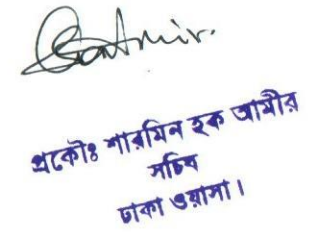 প্রকৌঃ শারমিন হক আমীর
সচিব
ঢাকা ওয়াসা।